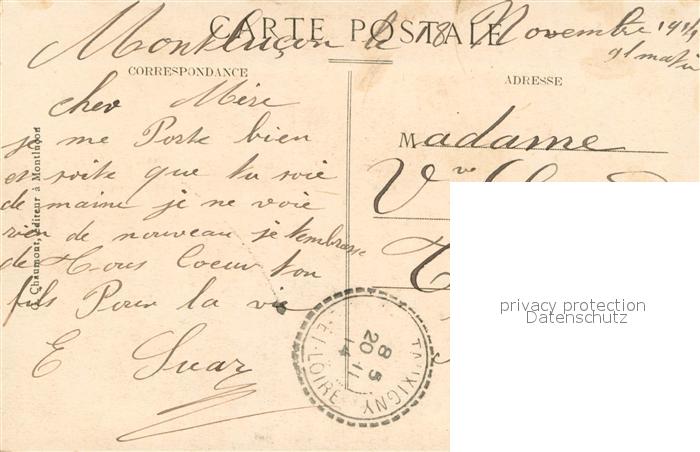 CARTE POSTALE
Montluçon le 18 Novembre 1914
91 matin
CORRESPONDANCE
ADRESSE
cher Mère
je me Porte bien
et soite que tu soie
de maine je ne voie
rien de nouveau je tembrasse
de tous Coeur ton
fils Pour la vie
E
Madame
Vve
Chaumont, éditeur à Montluçon
8 5
20 11
14
ET-LOIRE
privacy protection
Datenschutz